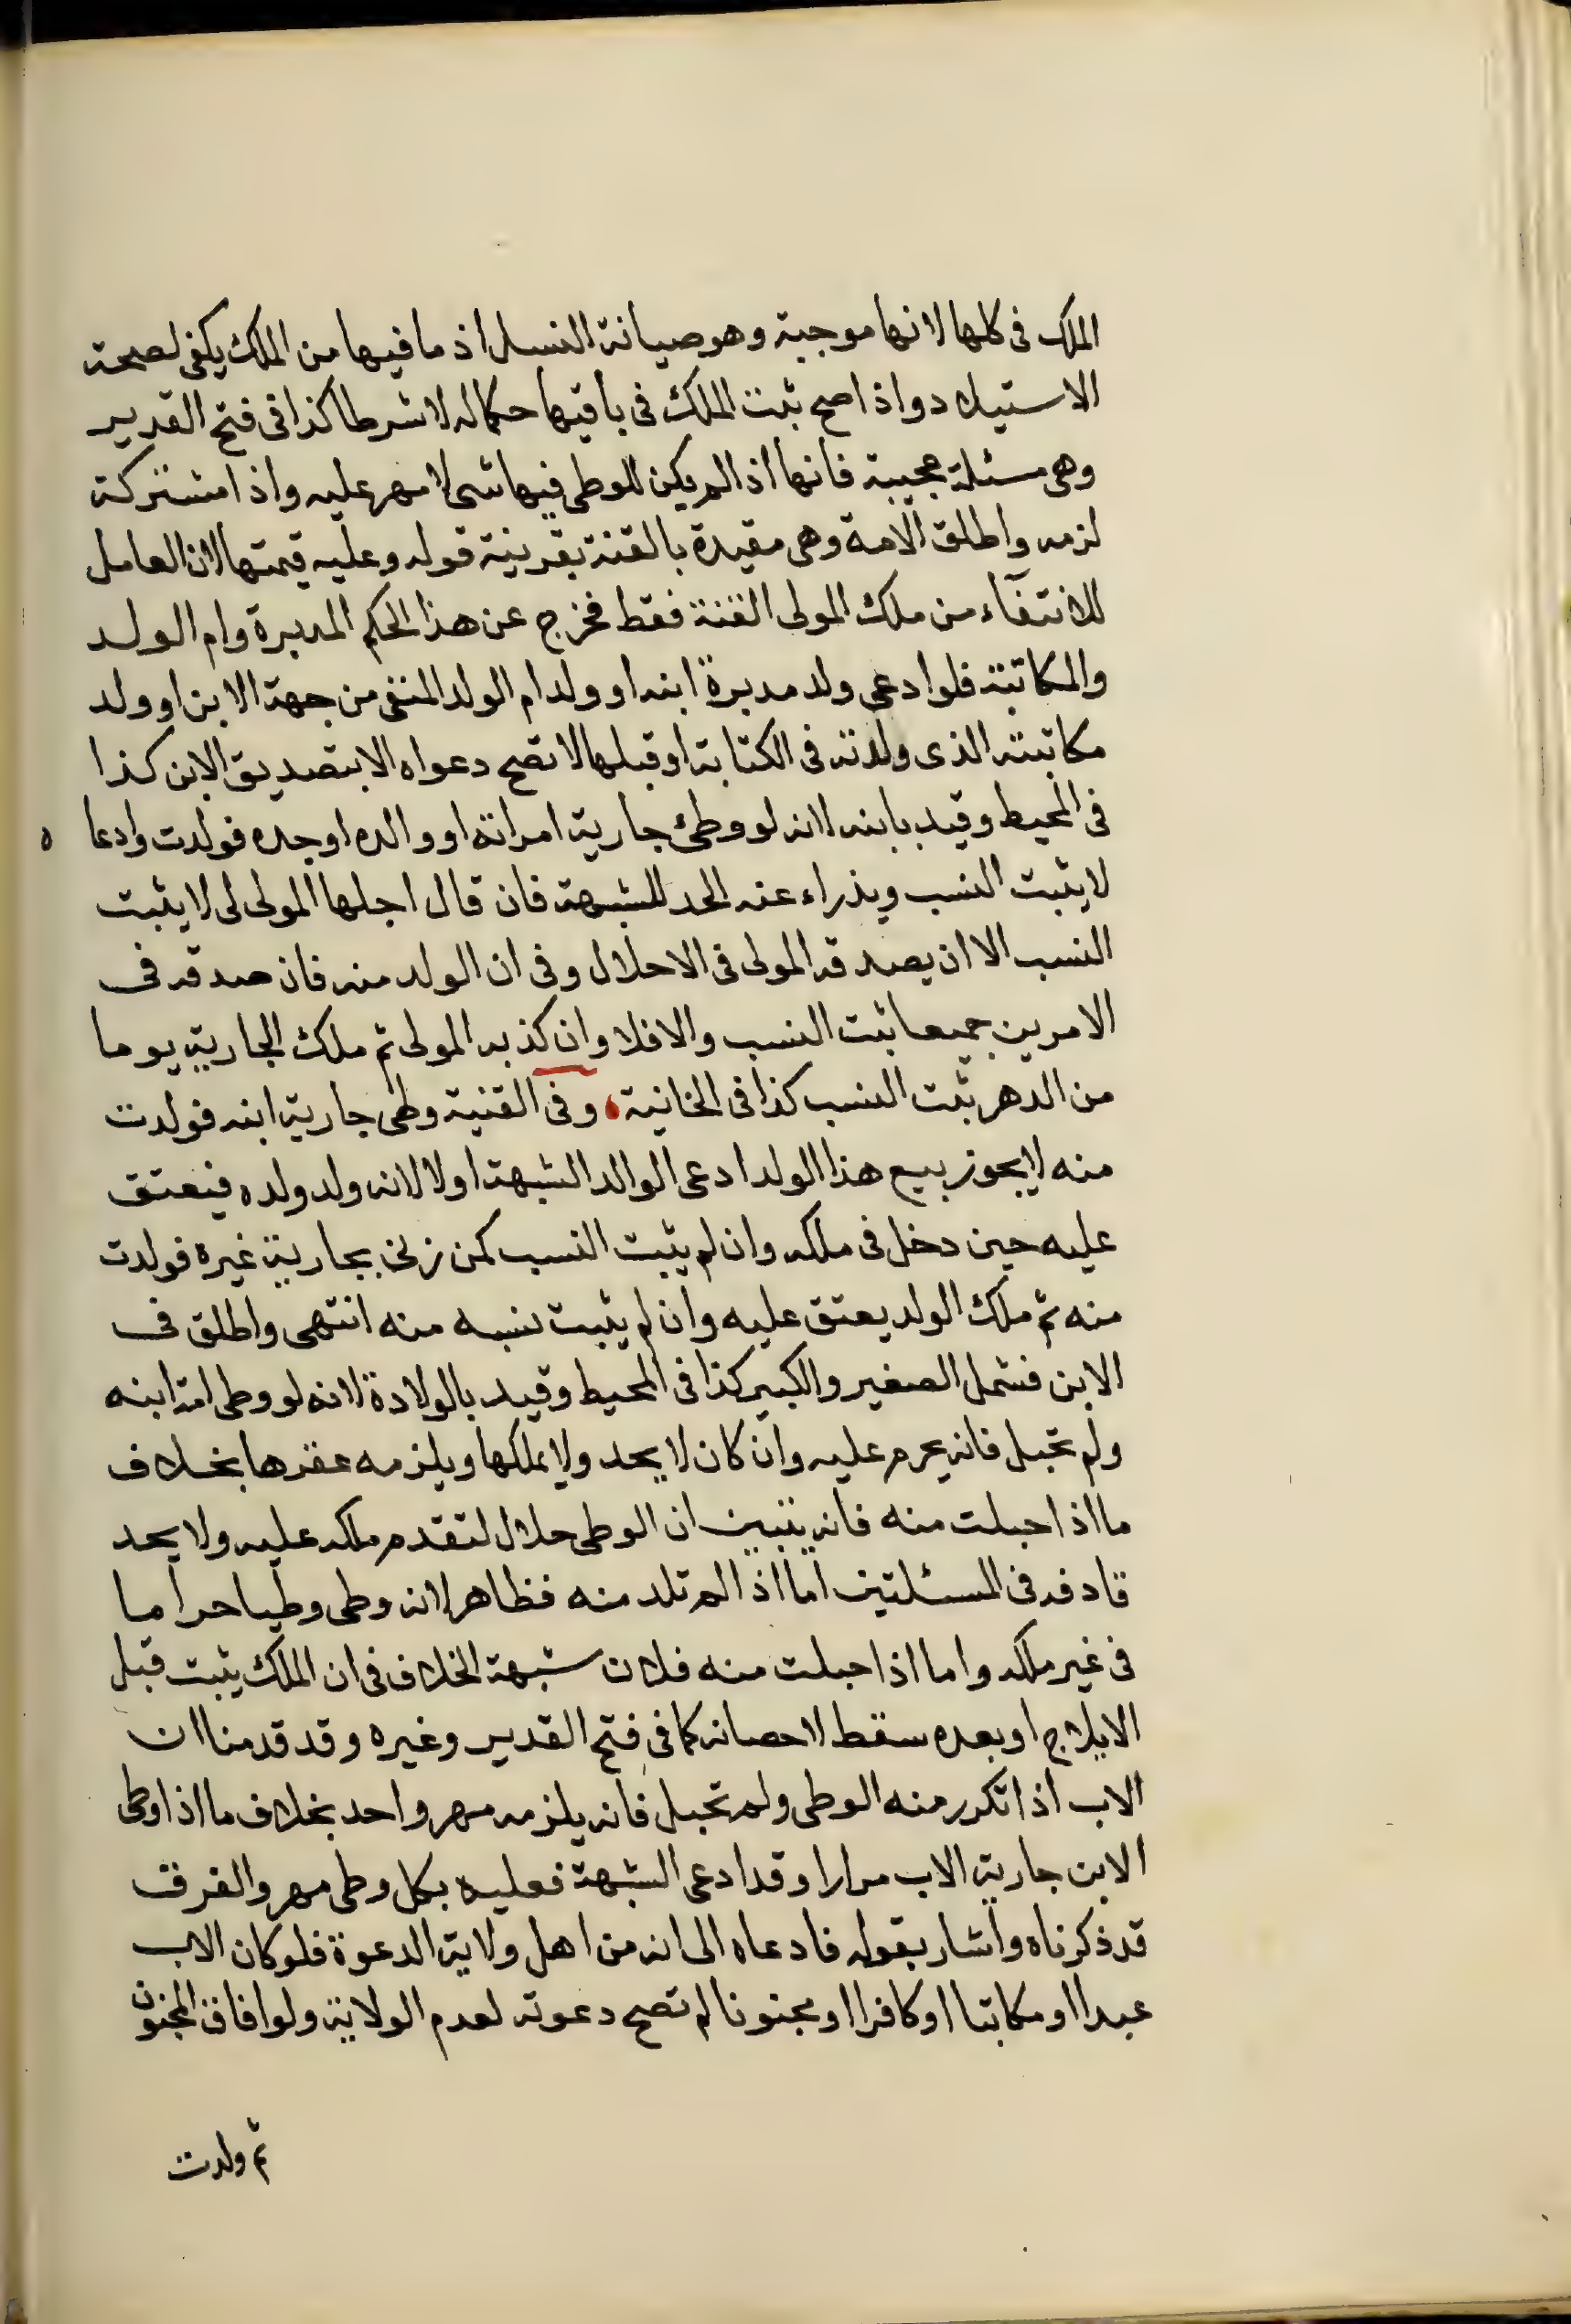 الملك فى كلها لانها موجبة وهو صيانة النسل اذ ما فيها من الملك يكفى لصحة
الاستيلاد واذا صح ثبت الملك فى باقيها حكما له لا شرطا كذا فى فتح القدير
وهى مسئلة عجيبة فانها اذا لم يكن للوطى فيها شى لا مهر عليه واذا مشتركة
لزمه واطلق الامة وهى مقيدة بالقنة بقرينة قوله وعليه قيمتها لان العامل
للانتفاء من ملك المولى القنة فقط فخرج عن هذا الحكم المدبرة وام الولد
والمكاتبة فلو ادعى ولد مدبرة ابنه او ولد ام الولد المنفى من جهة الابن او ولد
مكاتبته الذى ولدته فى الكتابة او قبلها لا تصح دعواه الا بتصديق الابن كذا
فى المحيط وقيد بابنه لانه لو وطئ جارية امراته او والده او جده فولدت وادعا ه
لا يثبت النسب ويدراء عنه الحد للشبهة فان قال احلها المولى لى لا يثبت
النسب الا ان يصدقه المولى فى الاحلال وفى ان الولد منه فان صدقه فى
الامرين جميعا ثبت النسب والا فلا وان كذبه المولى ثم ملك الجارية يوما
من الدهر ثبت النسب كذا فى الخانية، وفى القنية وطى جارية ابنه فولدت
منه لا يجوز بيع هذا الولد ادعى الوالد الشبهة اولا لانه ولد ولده فيعتق
عليه حين دخل فى ملكه وان لم يثبت النسب كمن زنى بجارية غيره فولدت
منه ثم ملك الولد يعتق عليه وان لم يثبت نسبه منه انتهى واطلق فى
الابن فشمل الصغير والكبير كذا فى المحيط وقيد بالولادة لانه لو وطى امة ابنه
ولم تحبل فانه يحرم عليه وان كان لا يحد ولا يملكها ويلزمه عقرها بخلاف
ما اذا حبلت منه فانه يتبين ان الوطى حلال لتقدم ملكه عليه ولا يحد
قاذفه فى المسئلتين اما اذا لم تلد منه فظاهر لانه وطى وطيا حراما
فى غير ملكه واما اذا حبلت منه فلان شبهة الخلاف فى ان الملك يثبت قبل
الايلاج او بعده سقط لاحصانه كما فى فتح القدير وغيره وقد قدمنا ان
الاب اذا تكرر منه الوطى ولم تحبل فانه يلزمه مهر واحد بخلاف ما اذا وطى
الابن جارية الاب مرارا وقد ادعى الشبهة فعليه بكل وطى مهر والفرق
قد ذكرناه واشار بقوله فادعاه الى انه من اهل ولاية الدعوة فلو كان الاب
عبدا او مكاتبا او كافرا او مجنونا لم تصح دعوته لعدم الولاية ولو افاق المجنون
ثم ولدت